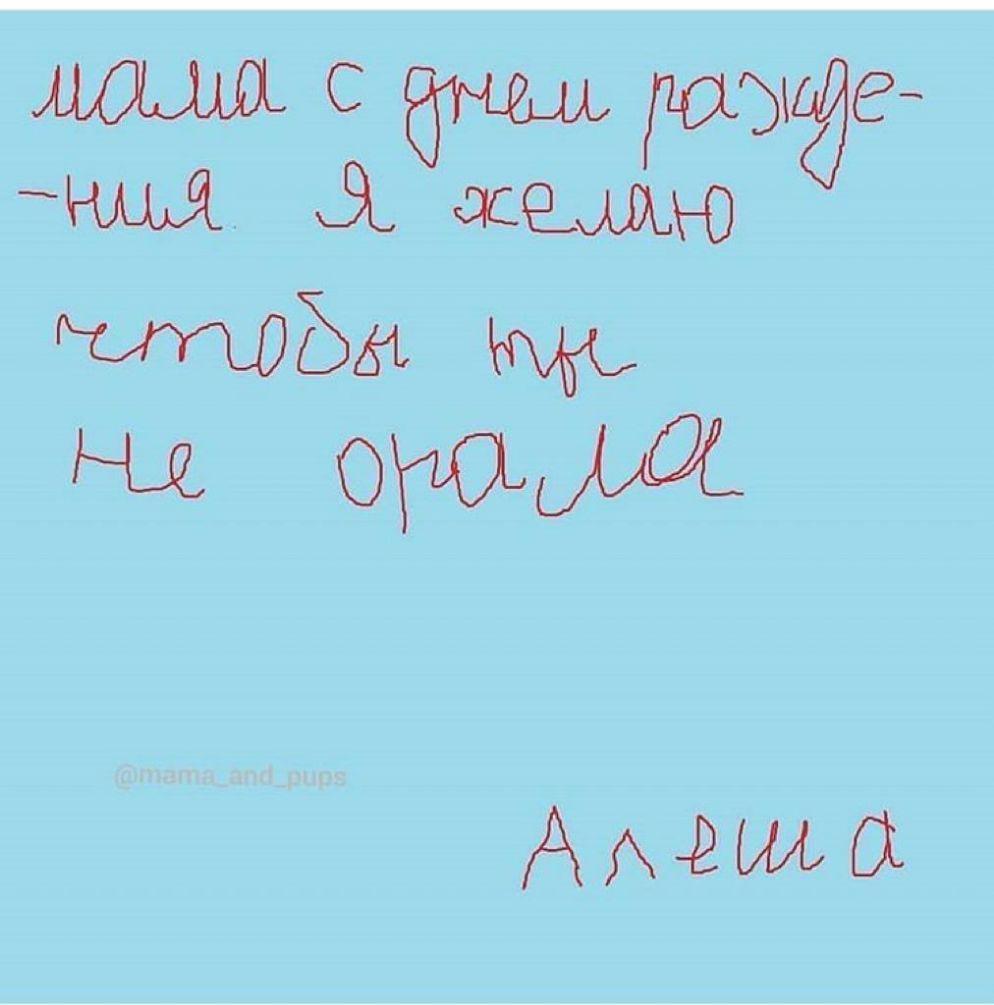 мама с днем ражде-
-ния я желаю
чтобы ты
не орала
@mama_and_pups
Алеша